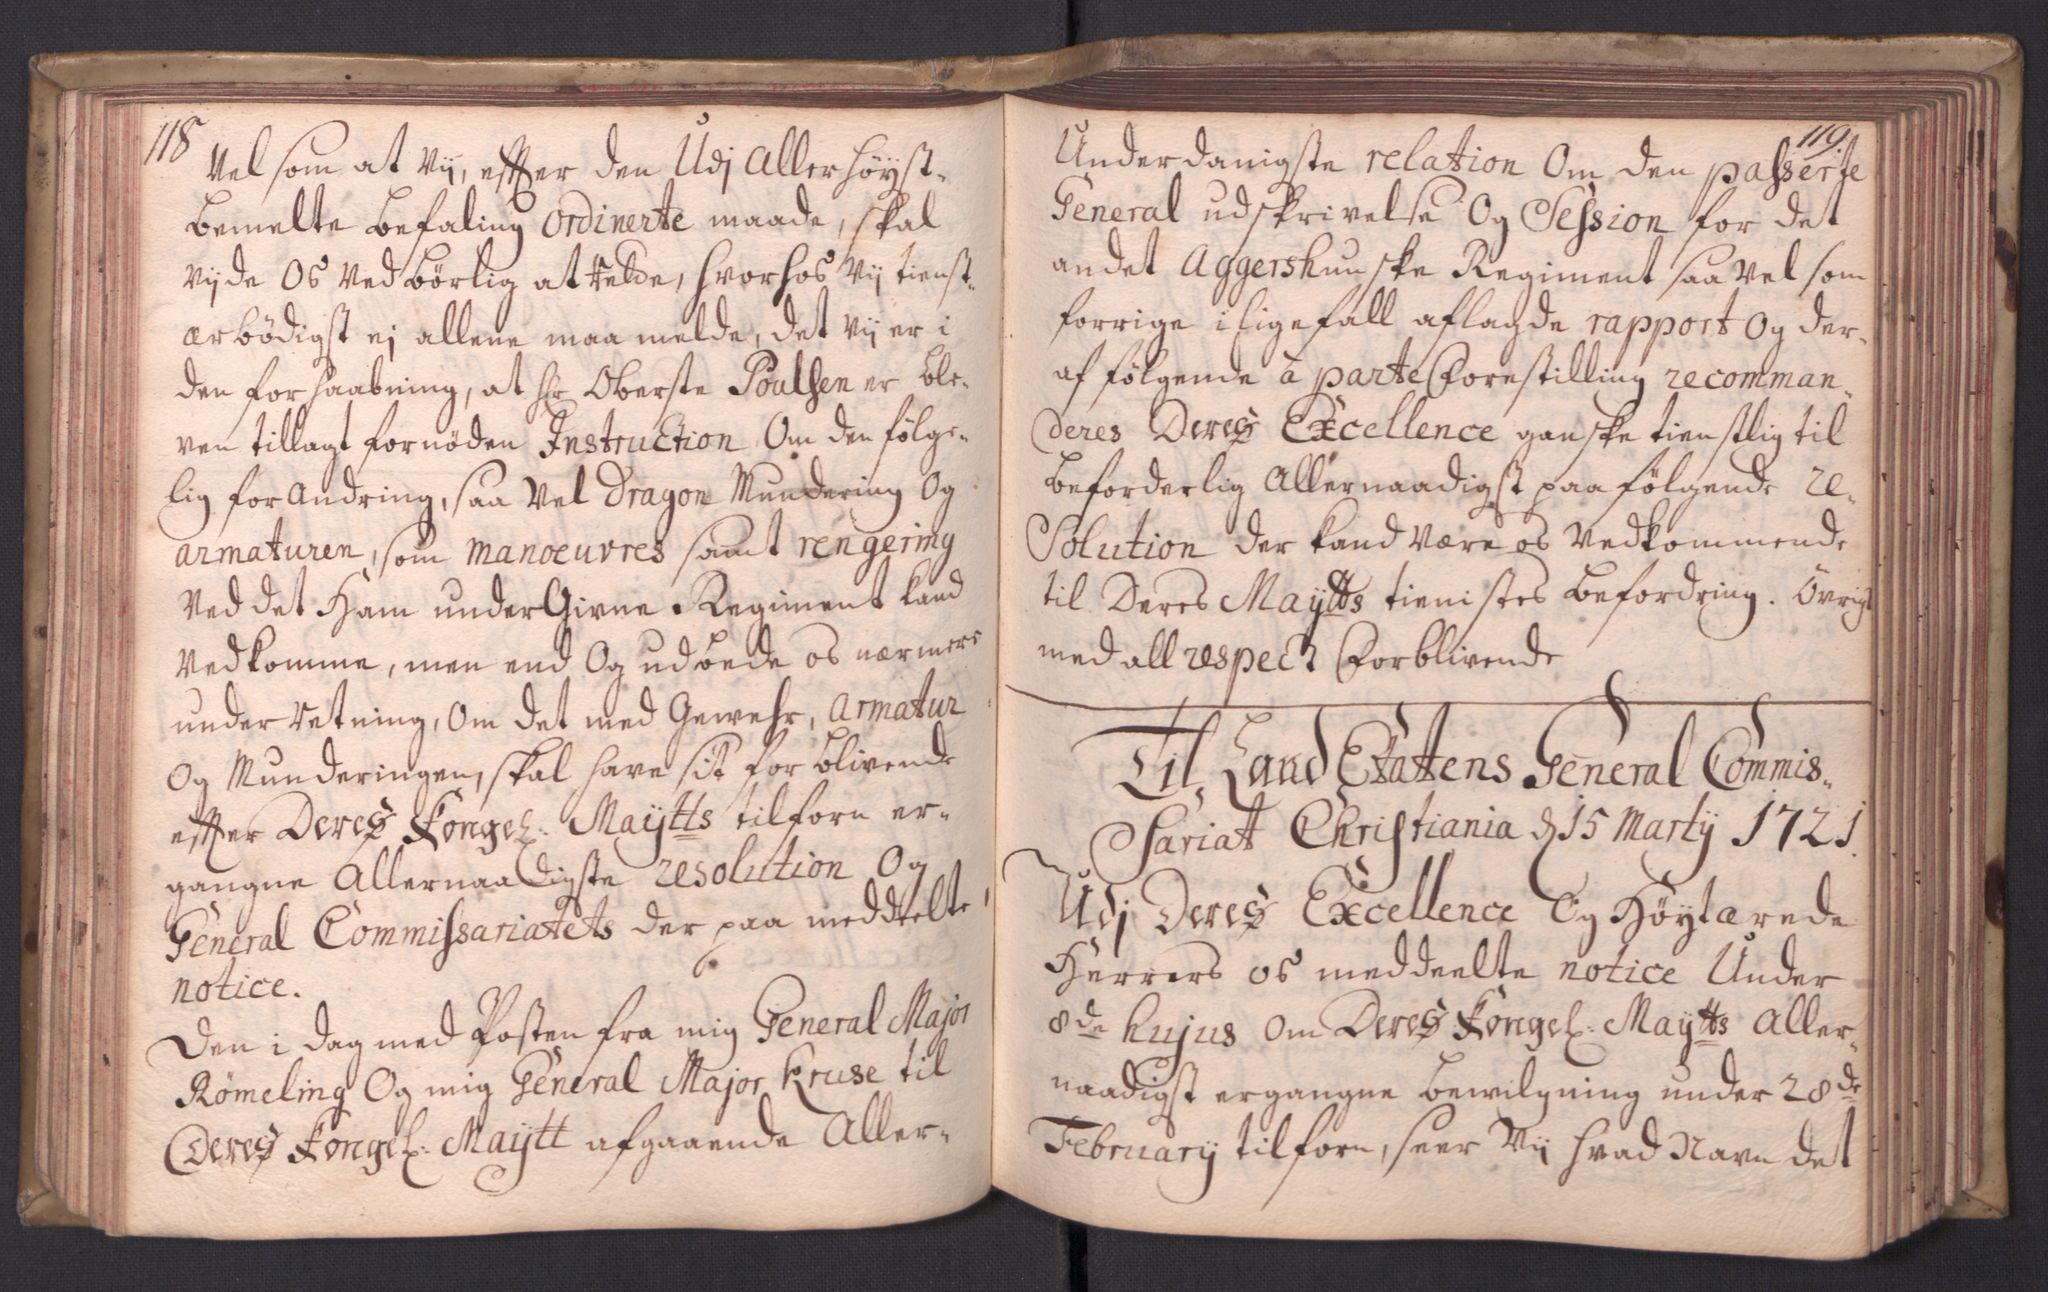 118
Vel som at Vij, efter den Udj Allerhöyst-
bemelte befaling ordinerte maade, skal
vijde Os Ved börlig at Helde, hvorhos Vij tienst-
ærbödigst ej allene maa melde, det Vij er i
den forhaabning, at hr Oberste Poulsen er ble-
ven tillagt fornöden Instruction Om den fölge-
lig forAndring, saa Vel Dragon Mundering Og
armaturen, som manoeuvres samt rengering
Ved det Ham underGivne Regiment kand
Vedkomme, men end Og udbede os nærmere
underretning, Om det med Gewehr, Armatur
Og Munderingen, skal have sit forblivende
efter Deres Kongel: Maytts tilforn er-
gangne Allernaadigste resolution Og
General Commissariatets der paa meddeelte
notice.
Den i Dag med Posten fra mig General Major
Römeling Og mig General Major Kruse til
Deres Kongel: Maytt afgaaende Aller-
119.
Underdanigste relation Om den passerte
General udskrivelse Og Session for det
andet Aggershuuske Regiment saa Vel som
forrige i ligefall aflagde rapport Og der-
af fölgende à parte forestilling recomman-
deres Deres Excellence ganske tienstlig til
beforderlig Allernaadigst paafölgende re-
Solution der kand være os Vedkommende
til Deres Maytts tienistes befordring. Övrigt
med all respect forblivende
Til Land Etattens General Commis-
Sariatt Christiania d 15 Martij 1721.
Udj Deres Excellence Og Höytærede
Herrers os meddeelte notice Under
8de hujus om Deres Kongel: Maytts Aller-
naadigst ergangne bewilgning under 28de
Februarij tilforn, seer Vij hvad Navn det